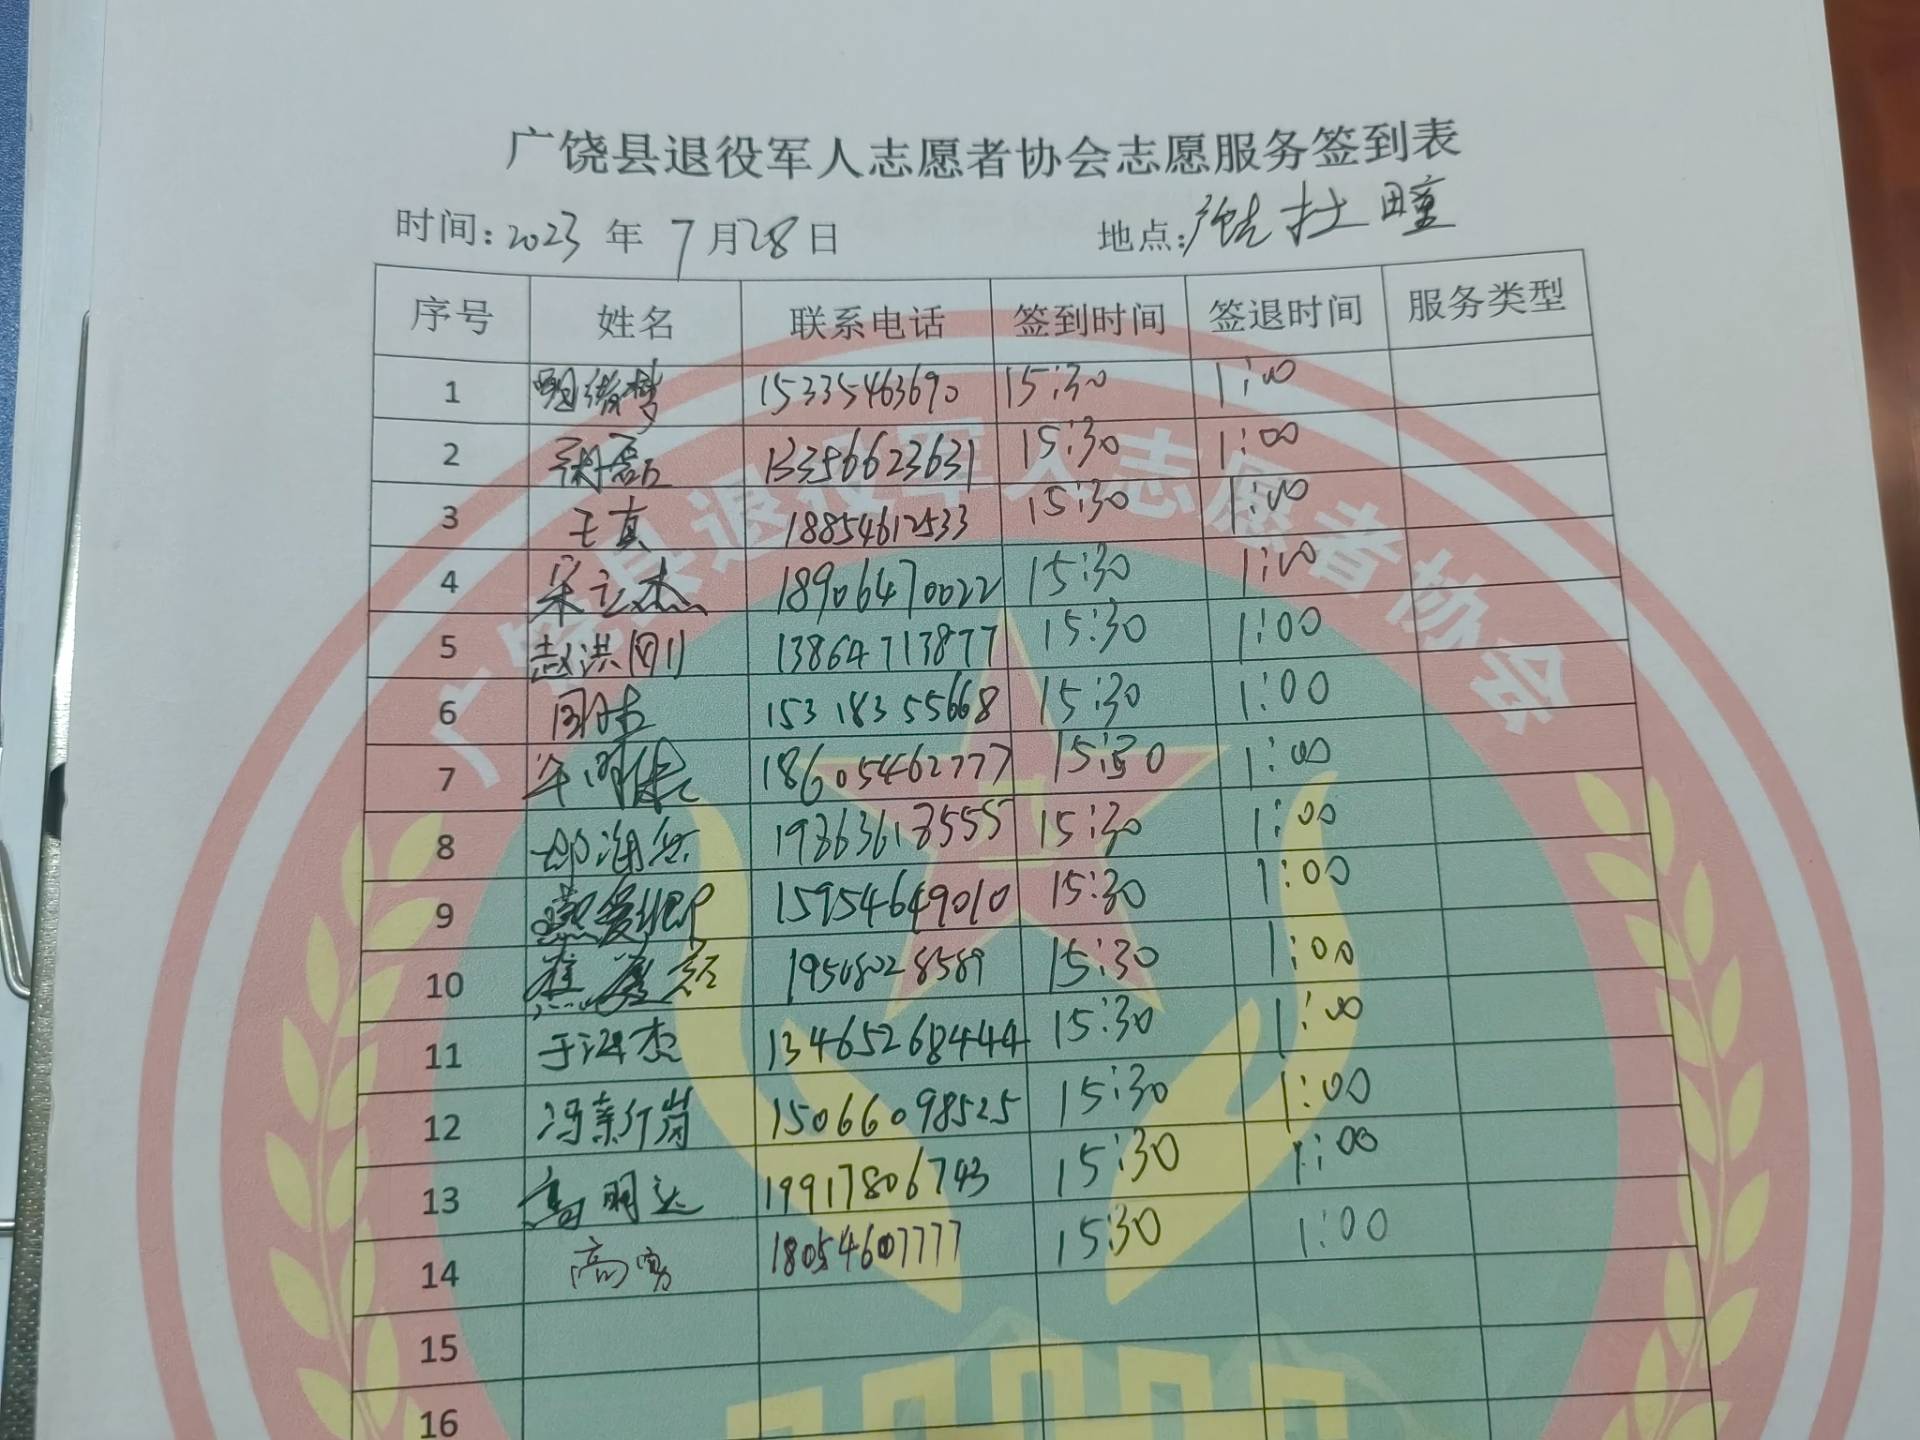 广饶县退役军人志愿者协会志愿服务签到表
时间: 2023 年 7 月 28 日 地点: 广饶杜疃
序号 姓名 联系电话 签到时间 签退时间 服务类型
1 15335463690 15:30 1:00
2 13356623631 15:30 1:00
3 王真 18854612533 15:30 1:00
4 宋立杰 18906470022 15:30 1:00
5 赵洪刚 13864713877 15:30 1:00
6 15318355668 15:30 1:00
7 18605462777 15:30 1:00
8 19863618555 15:30 1:00
9 15954649010 15:30 1:00
10 19508028589 15:30 1:00
11 于江杰 13465268444 15:30 1:00
12 15066098525 15:30 1:00
13 高明达 19917806743 15:30 1:00
14 高勇 18054607777 15:30 1:00
15
16
广饶县退役军人志愿者协会